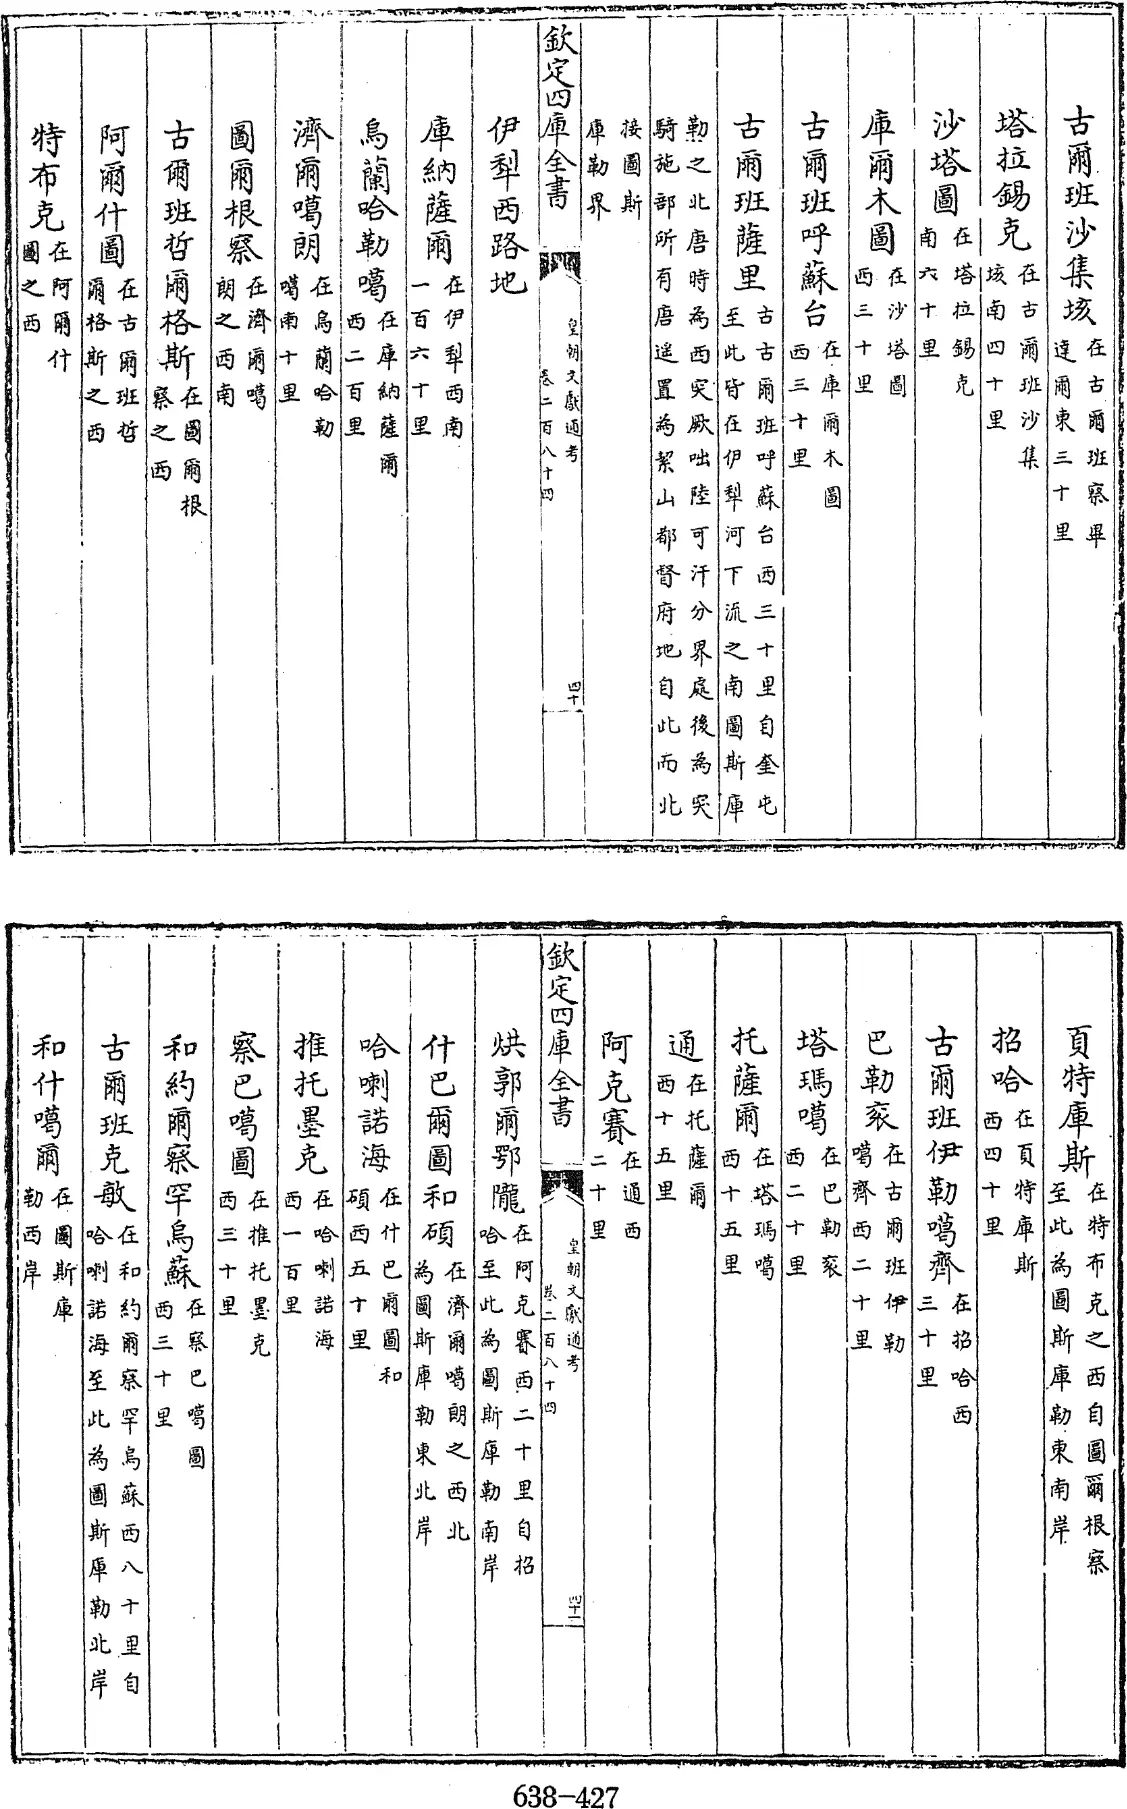 古爾班沙集垓在古爾班察畢逹爾東三十里
塔拉錫克在古爾班沙集垓南四十里
沙塔圖在塔拉錫克南六十里
庫爾木圖在沙塔圖西三十里
古爾班呼蘇台在庫爾木圖西三十里
古爾班薩里古古爾班呼蘇台西三十里自奎屯至此皆在伊犂河下流之南圖斯庫
勒之北唐時為西突厥咄陸可汗分界處後為突騎施部所有唐遥置為絜山都督府地自此而北
接圖斯庫勒界
欽定四庫全書
皇朝文獻通考
卷二百八十四
四十
伊犂西路地
庫納薩爾在伊犂西南一百六十里
烏蘭哈勒噶在庫納薩爾西二百里
濟爾噶朗在烏蘭哈勒噶南十里
圖爾根察在濟爾噶朗之西南
古爾班哲爾格斯在圖爾根察之西
阿爾什圖在古爾班哲爾格斯之西
特布克在阿爾什圖之西
頁特庫斯在特布克之西自圖爾根察至此為圖斯庫勒東南岸
招哈在頁特庫斯西四十里
古爾班伊勒噶齊在招哈西三十里
巴勒衮在古爾班伊勒噶齊西二十里
塔瑪噶在巴勒衮西二十里
托薩爾在塔瑪噶西十五里
通在托薩爾西十五里
阿克賽在通西二十里
欽定四庫全書
皇朝文獻通考
卷二百八十四
四十一
烘郭爾鄂隴在阿克賽西二十里自招哈至此為圖斯庫勒南岸
什巴爾圖和碩在濟爾噶朗之西北為圖斯庫勒東北岸
哈喇諾海在什巴爾圖和碩西五十里
推托墨克在哈喇諾海西一百里
察巴噶圖在推托墨克西三十里
和約爾察罕烏蘇在察巴噶圖西三十里
古爾班克敏在和約爾察罕烏蘇西八十里自哈喇諾海至此為圖斯庫勒北岸
和什噶爾在圖斯庫勒西岸
638-427